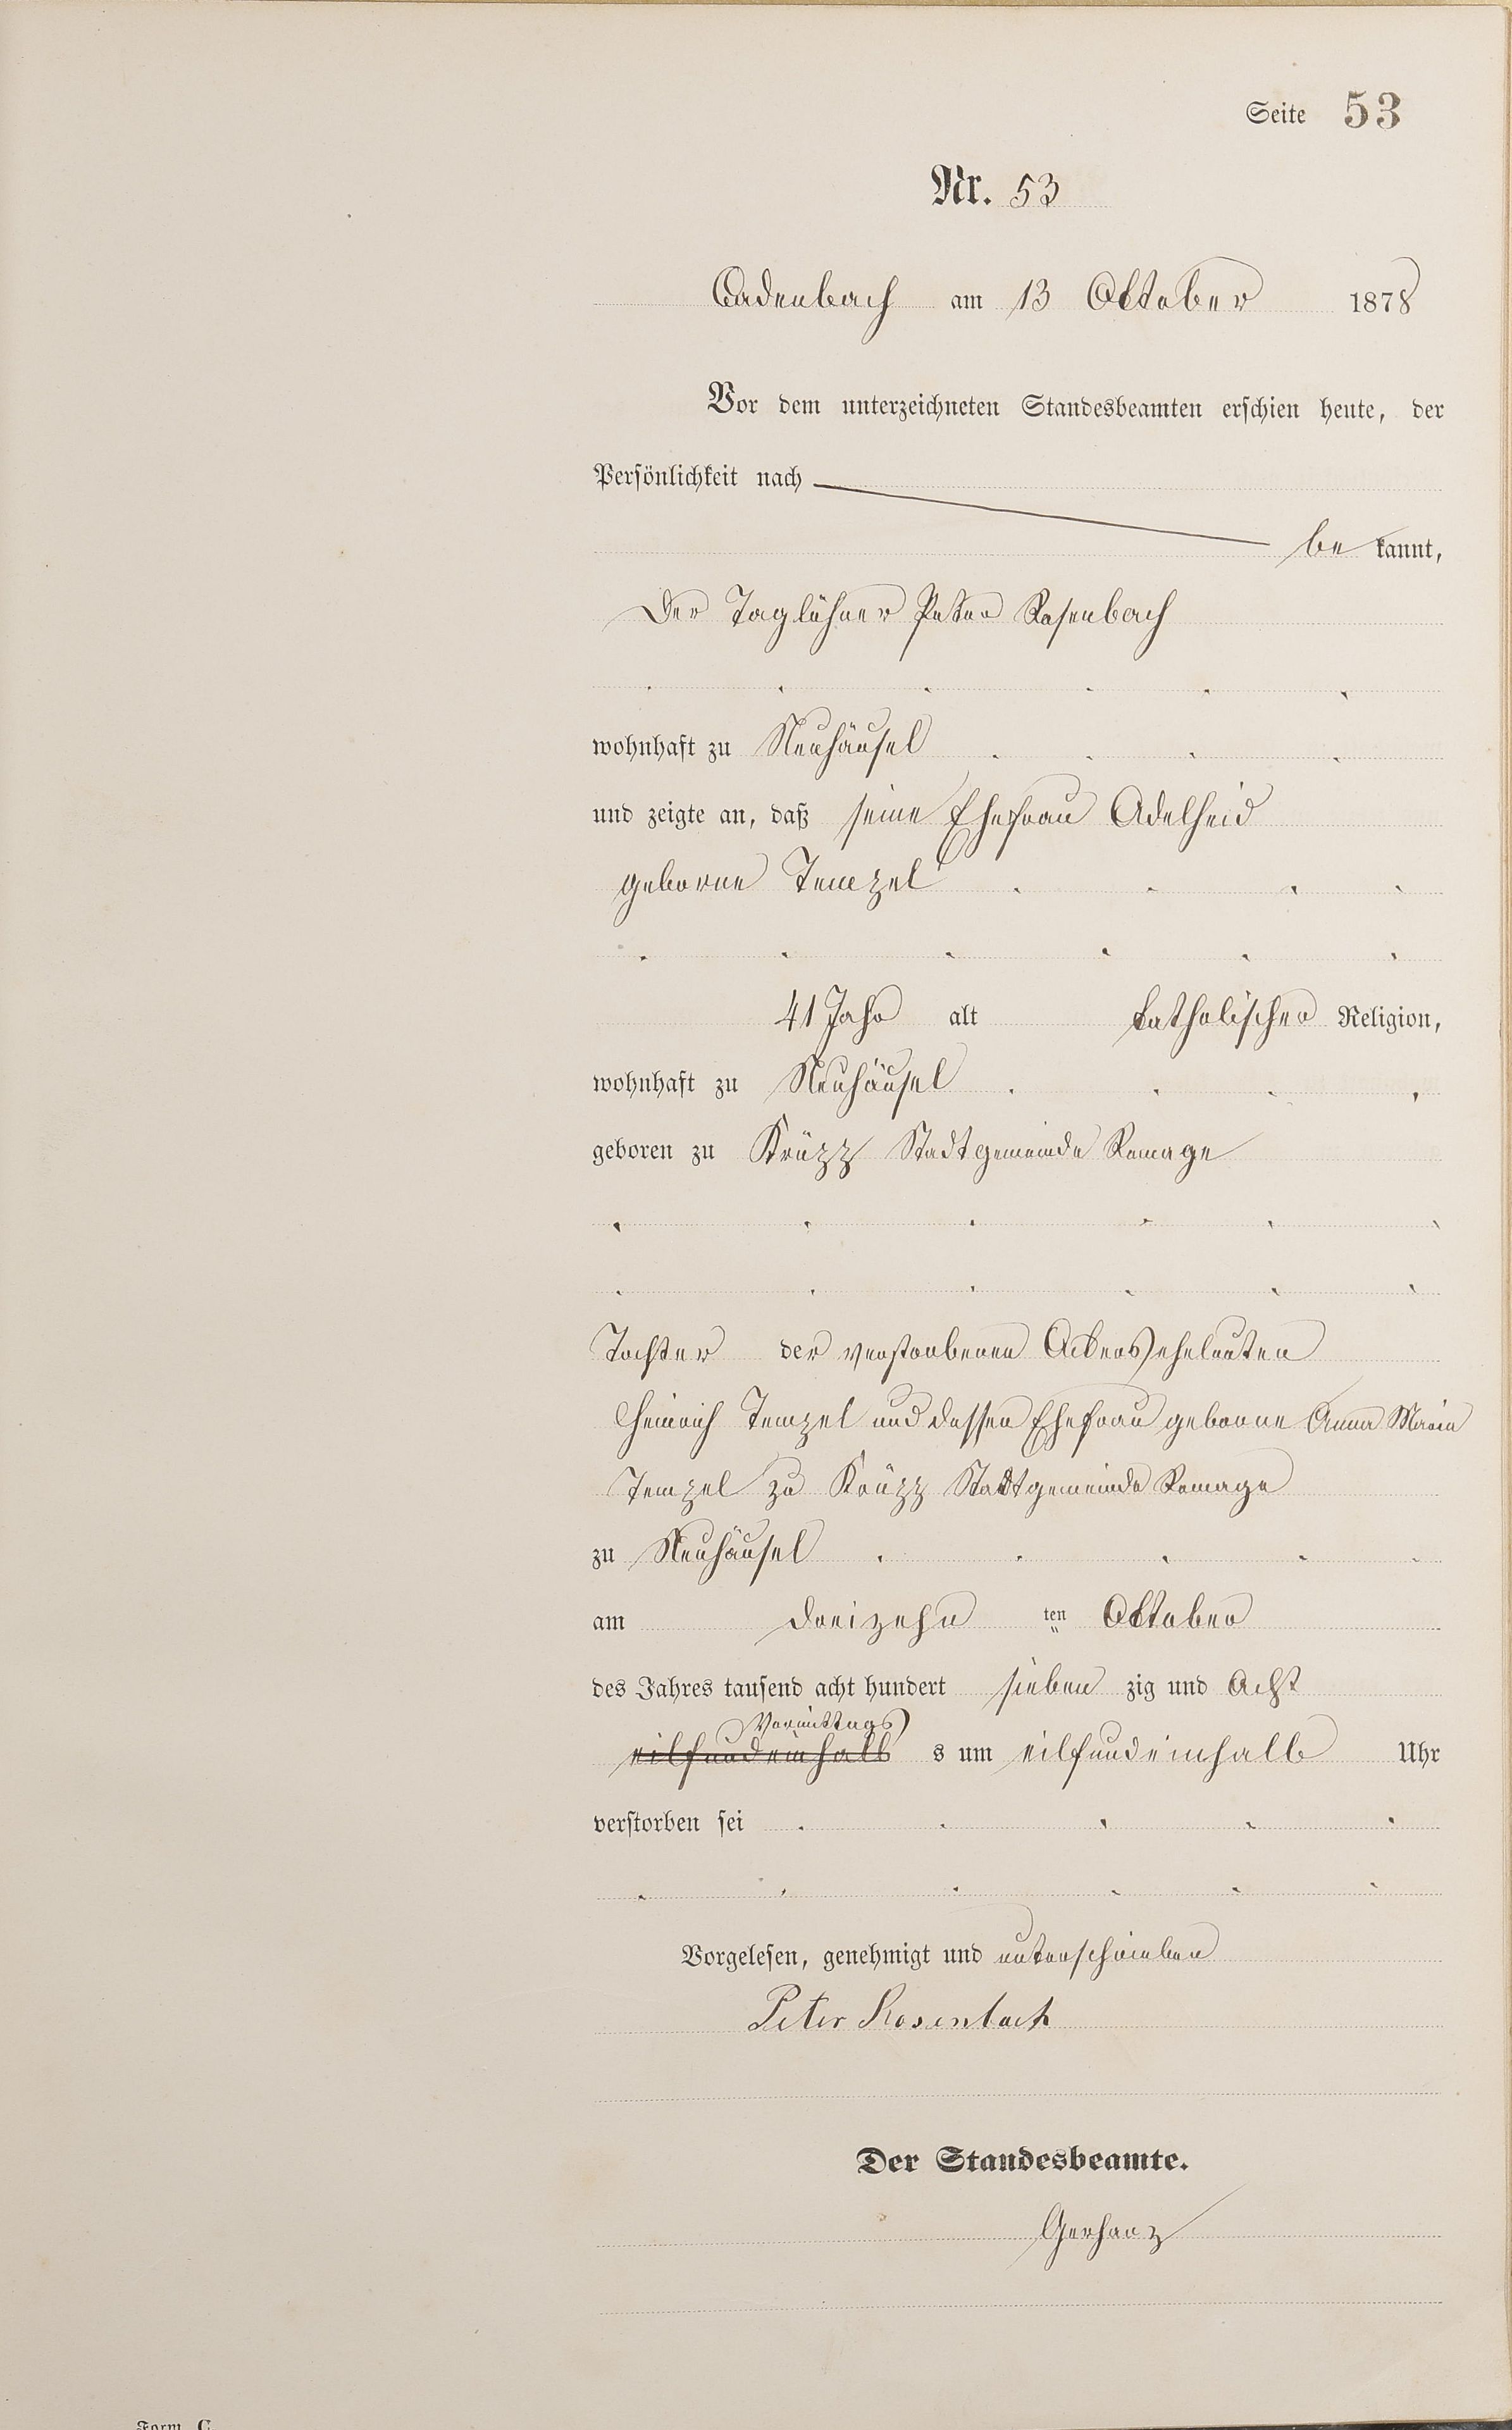 Seite 53
Nr. 53
Cadenbach am 13 Oktober 1878
Vor dem unterzeichneten Standesbeamten erschien heute, der
Persönlichkeit nach
be kannt,
Der Taglöhner Peter Rosenbach
wohnhaft zu Neuhäusel
und zeigte an, daß seine Ehefrau Adelheid
geborne Temzel
41 Jahr alt katholischer Religion,
wohnhaft zu Neuhäusel
geboren zu Krüzz Stadtgemeinde Remage
Tochter der verstorbenen Ackerseheleuten
Heinrich Temzel und dessen Ehefrau geborne Anna Maria
Temzel zu Krüzz Stadtgemeinde Remage
zu Neuhäusel
am dreizehn ten Oktober
des Jahres tausend acht hundert sieben zig und Acht
Vormittags
eilfundeinhalb s um eilfundeinhalb Uhr
verstorben sei
Vorgelesen, genehmigt und unterschrieben
Peter Rosenbach
Der Standesbeamte.
Gerharz
Form. C